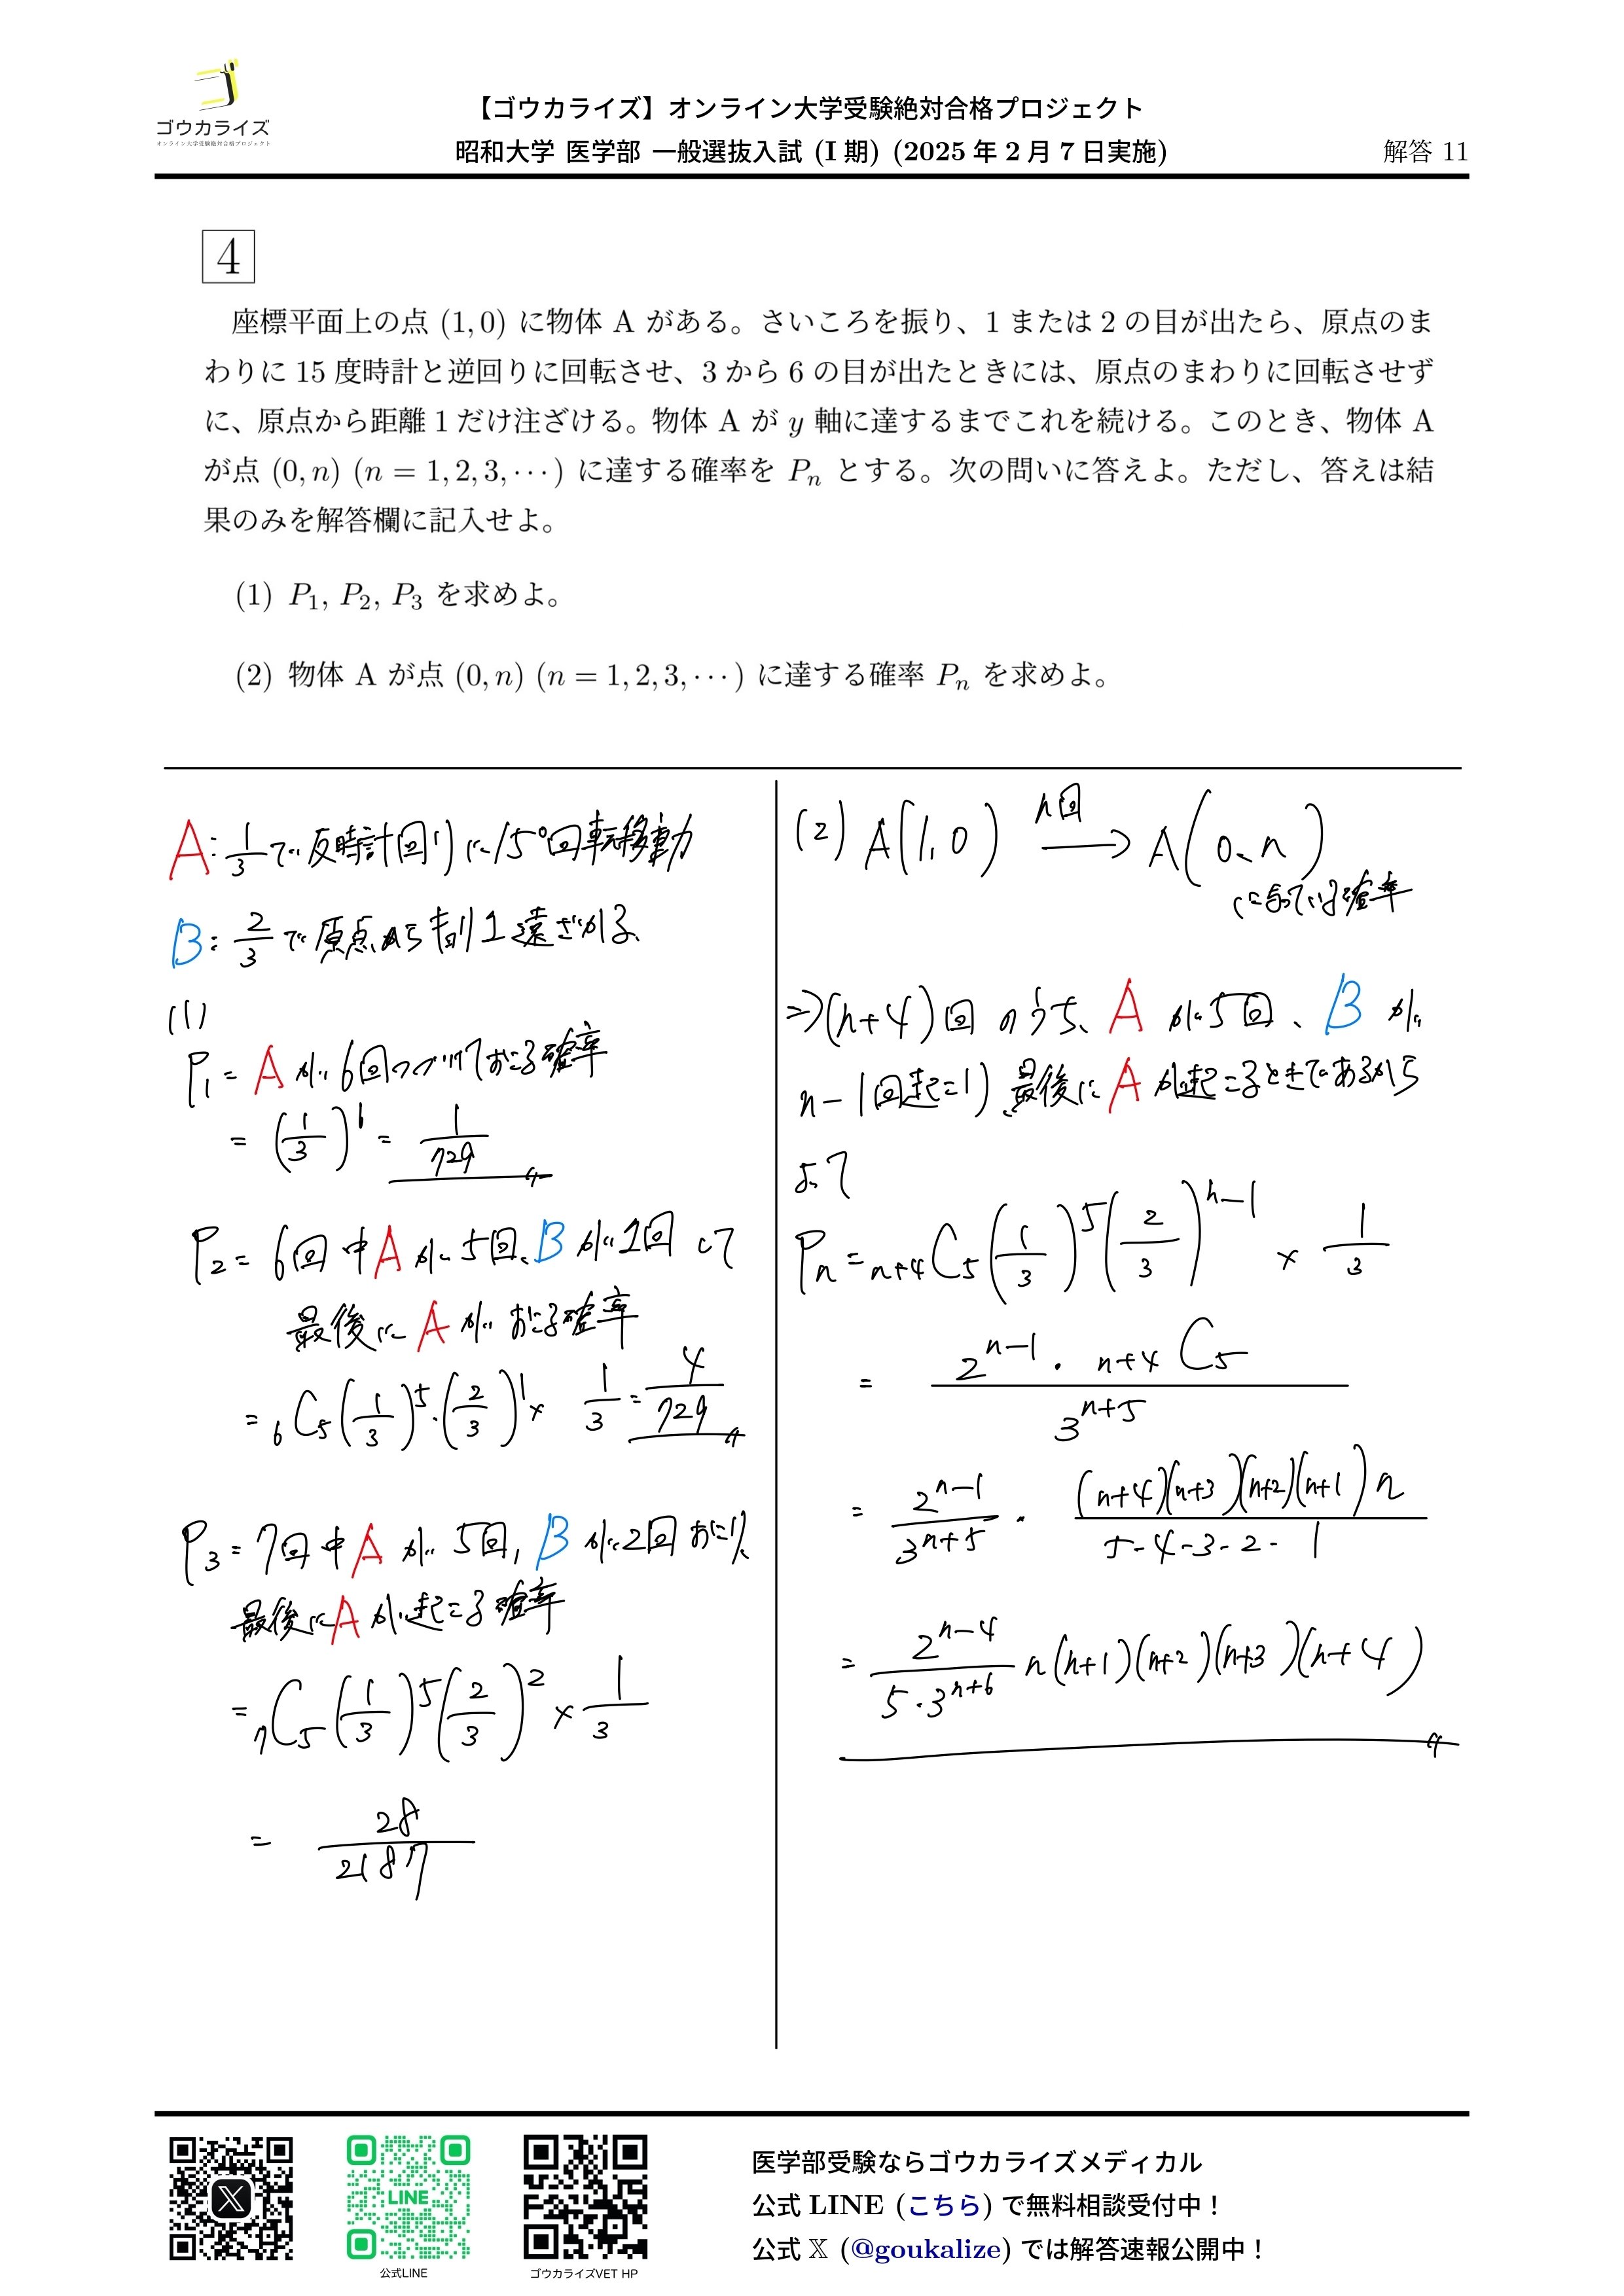 ゴウカライズ
オンライン大学受験絶対合格プロジェクト
【ゴウカライズ】オンライン大学受験絶対合格プロジェクト
昭和大学 医学部 一般選抜入試 (I 期) (2025 年 2 月 7 日実施)
解答 11
4
座標平面上の点 (1, 0) に物体 A がある。さいころを振り、1 または 2 の目が出たら、原点のま
わりに 15 度時計と逆回りに回転させ、3 から 6 の目が出たときには、原点のまわりに回転させず
に、原点から距離 1 だけ注ざける。物体 A が y 軸に達するまでこれを続ける。このとき、物体 A
が点 (0, n) (n = 1, 2, 3, ⋯) に達する確率を Pₙ とする。次の問いに答えよ。ただし、答えは結
果のみを解答欄に記入せよ。
(1) P₁, P₂, P₃ を求めよ。
(2) 物体 A が点 (0, n) (n = 1, 2, 3, ⋯) に達する確率 Pₙ を求めよ。
A: 1/3 で 反時計回りに15°回転移動
B: 2/3 で 原点から 1遠ざかる、
(1)
P₁ = A が 6回つづけておこる確率
= (1/3)⁶ = 1/729
P₂ = 6回中Aが5回、Bが1回して
最後にAがおこる確率
= ₆C₅(1/3)⁵·(2/3)¹ × 1/3 = 4/729
P₃ = 7回中Aが5回, Bが2回おこり、
最後にAが起こる確率
= ₇C₅(1/3)⁵(2/3)² × 1/3
= 28/2187
(2) A(1, 0) n回→ A(0, n)
に なっている確率
⇒(n+4)回 のうち、Aが5回、Bが
n-1回起こり、最後にAが起こるときであるから
よって
Pₙ = ₙ₊₄C₅(1/3)⁵(2/3)ⁿ⁻¹ × 1/3
= 2ⁿ⁻¹・ₙ₊₄C₅ / 3ⁿ⁺⁵
= 2ⁿ⁻¹/3ⁿ⁺⁵ · (n+4)(n+3)(n+2)(n+1)n / 5·4·3·2·1
= 2ⁿ⁻⁴/5·3ⁿ⁺⁶ n(n+1)(n+2)(n+3)(n+4)
LINE
公式LINE
ゴウカライズVET HP
医学部受験ならゴウカライズメディカル
公式 LINE (こちら) で無料相談受付中！
公式 𝕏 (@goukalize) では解答速報公開中！